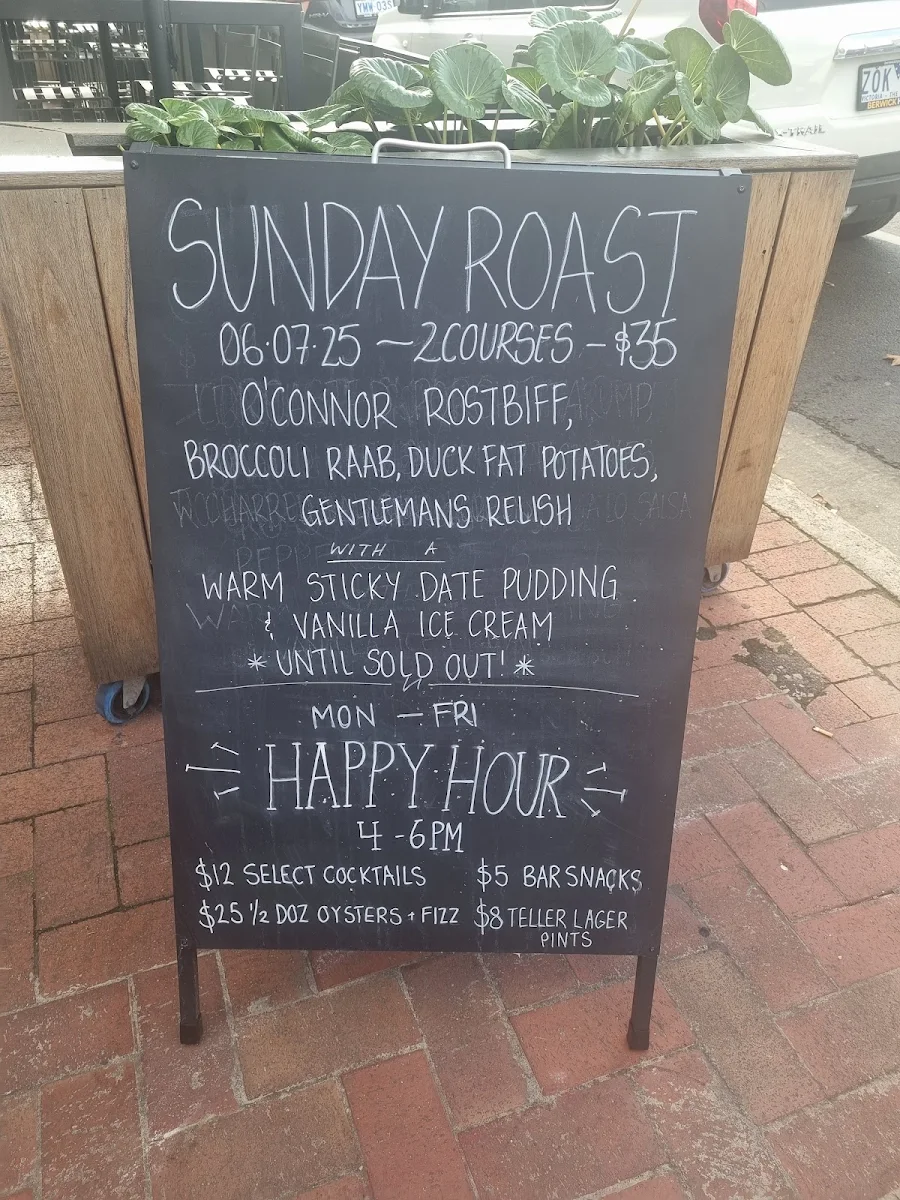 YMW 03S
ZOK
BERWICK
X-TRAIL
SUNDAY ROAST
06.07.25 - 2 COURSES - $35
O'CONNOR ROSTBIFF,
BROCCOLI RAAB, DUCK FAT POTATOES,
GENTLEMANS RELISH
WITH A
WARM STICKY DATE PUDDING
& VANILLA ICE CREAM
* UNTIL SOLD OUT! *
MON - FRI
HAPPY HOUR
4 - 6PM
$12 SELECT COCKTAILS
$25 1/2 DOZ OYSTERS + FIZZ
$5 BAR SNACKS
$8 TELLER LAGER
PINTS